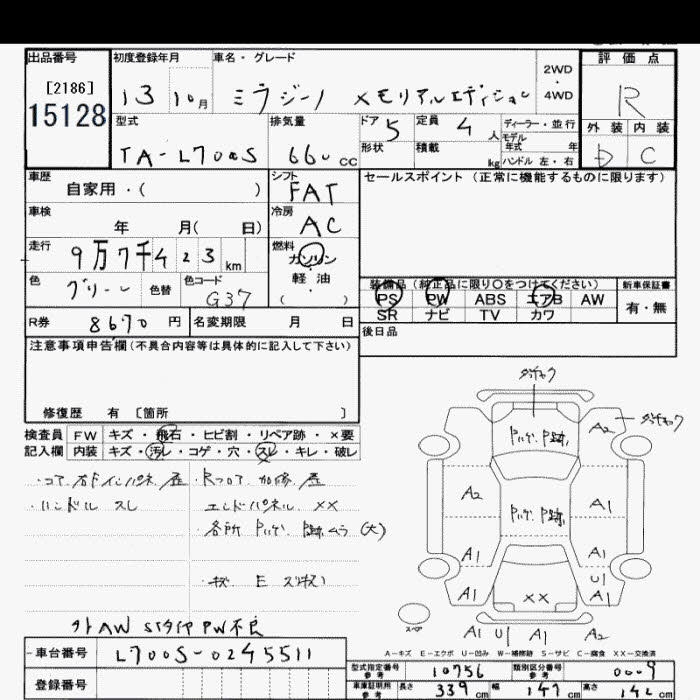 出品番号
[2186]
15128
初度登録年月
13 10月
車名・グレード
ミラジーノ メモリアルエディション
2WD
・
4WD
評価点
R
外装 内装
D C
型式
TA-L700S
排気量
660 cc
ドア 5
定員 4 人
ディーラー・並行
形状
積載 kg
モデル年式 年
ハンドル 左・右
車歴
自家用・( )
シフト
FAT
セールスポイント (正常に機能するものに限ります)
車検
年 月( 日)
冷房
AC
走行
9万7千423 km
燃料
ガソリン
・
軽油
( )
色
グリーン
色替
色コード
G37
装備品 (純正品に限り○をつけてください)
PS PW ABS エアB AW
SR ナビ TV カワ
新車保証書
有・無
R券 8670 円
名変期限 月 日
後日品
注意事項申告欄(不具合内容等は具体的に記入して下さい)
修復歴 有 〔箇所 〕
検査員 FW キズ・飛石・ヒビ割・リペア跡・×要
記入欄 内装 キズ・汚レ・コゲ・穴・スレ・キレ・破レ
・ハンドル スレ
エンドパネル XX
・各所 (大)
外AW PW不良
車台番号 L700S-0245511
登録番号
A2
A2 A1
A1 A1
U1
A1 A1
XX
A1 U1 A1 A2
スペア
A-キズ E-エクボ U-凹み W-補修跡 S-サビ C-腐食 XX-交換済
型式指定番号 参考 10756
類別区分番号 参考 0009
車庫証明用 参考 長さ 339 cm 幅 147 cm 高さ 142 cm